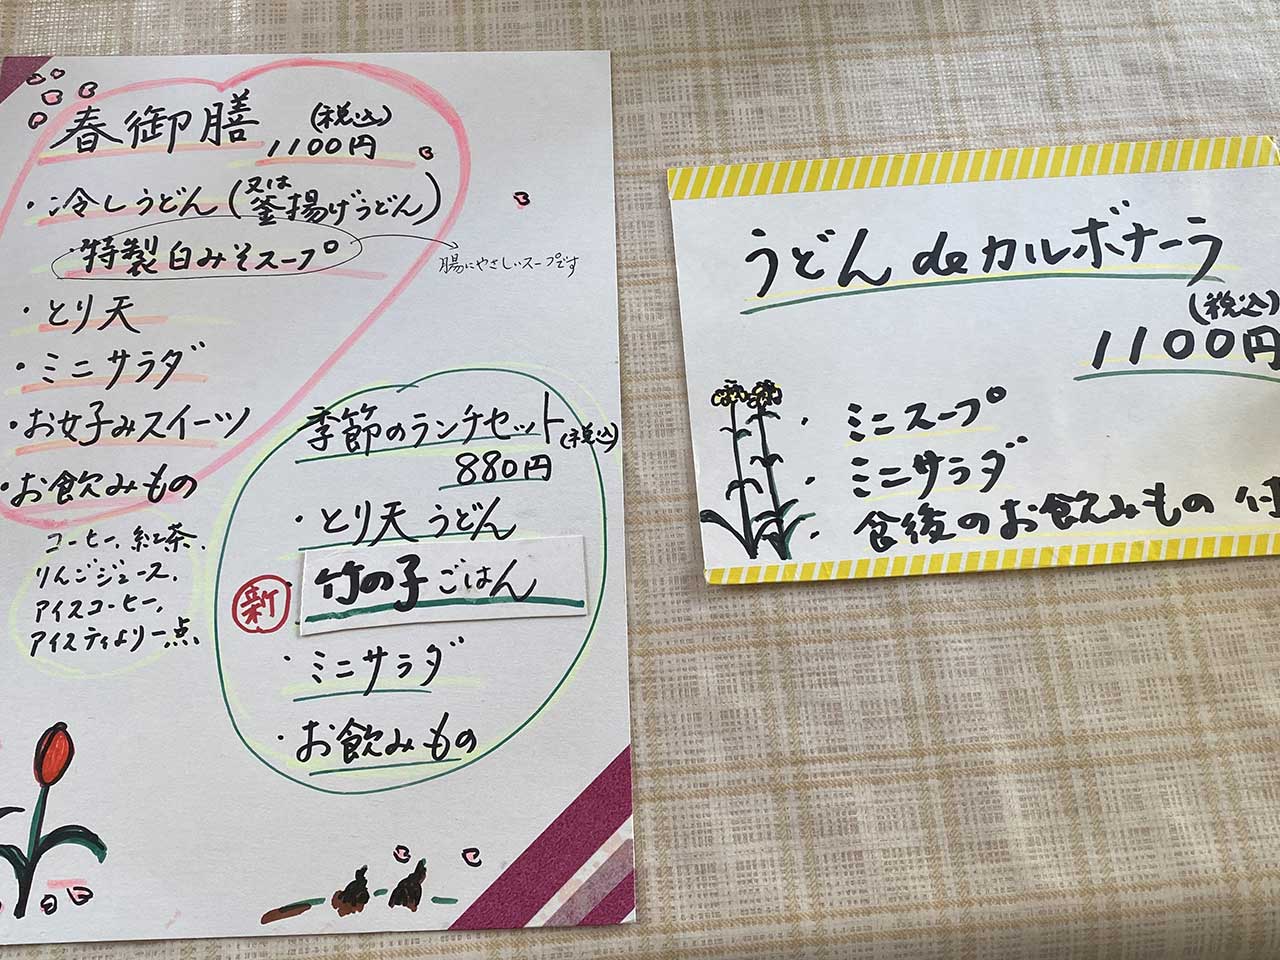 春御膳 (税込)
1100円
・冷しうどん(又は釜揚げうどん)
・特製白みそスープ
腸にやさしいスープです
・とり天
・ミニサラダ
・お好みスイーツ
・お飲みもの
コーヒー、紅茶、
りんごジュース、
アイスコーヒー、
アイスティより一点
季節のランチセット(税込)
880円
・とり天うどん
新 ・竹の子ごはん
・ミニサラダ
・お飲みもの
うどん de カルボナーラ
(税込)
1100円
・ミニスープ
・ミニサラダ
食後のお飲みもの付